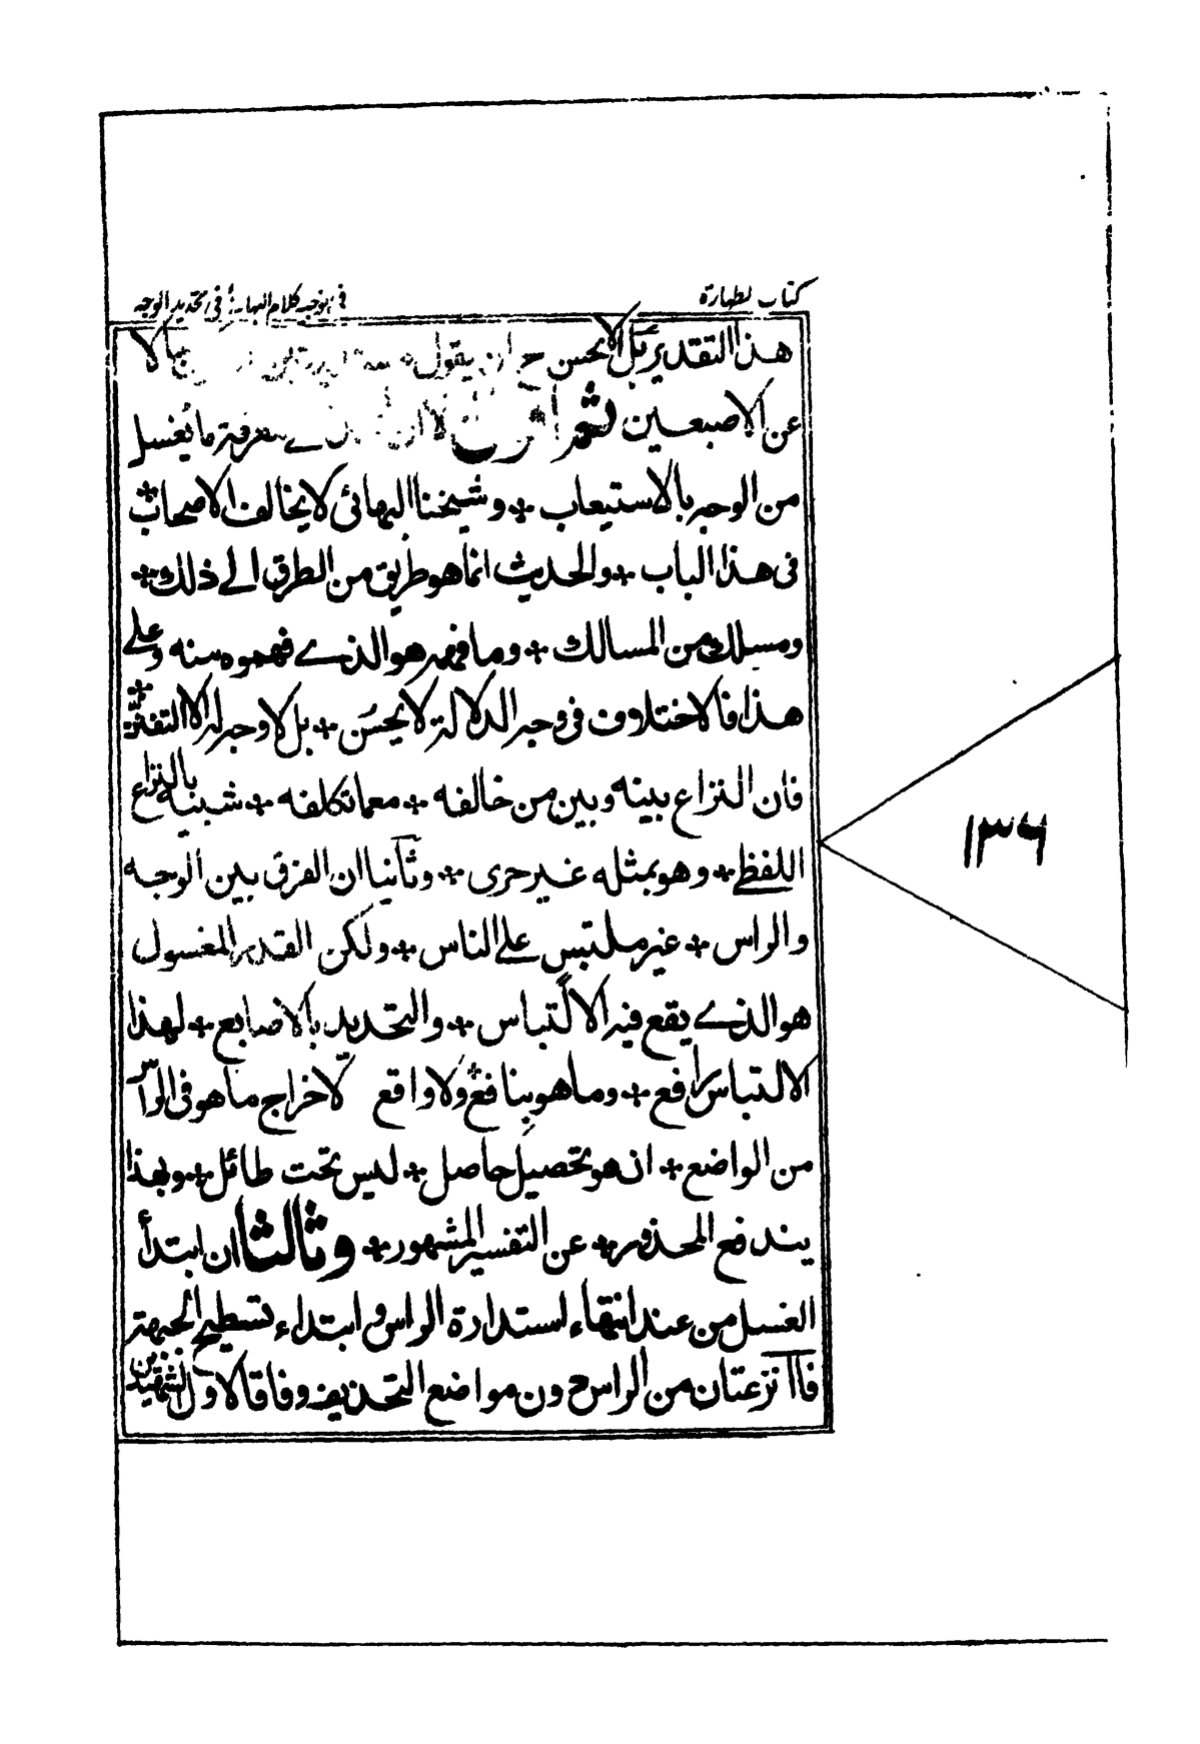 كتاب لطهارة
في توجيه كلام البهائي في تحديد الوجه
هذا التقدير بل لا يحسن ح ان يقول
عن الاصبعين ثم معرفة ما يغسل
من الوجه بالاستيعاب + وشيخنا البهائي لا يخالف الاصحاب +
في هذا الباب + والحديث انما هو طريق من الطرق الى ذلك +
ومسلك من المسالك + وما فهمه هو الذي فهموه منه وعلى
هذا فالاختلاف في وجه الدلالة لا يحسن + بل لا وجه له الا التفنن +
فان النزاع بينه وبين من خالفه + مع ما تكلفه + شبيه بالنزاع
اللفظي + وهو بمثله غير حرى + وثانيا ان الفرق بين الوجه
والراس + غير ملتبس على الناس + ولكن القدر المغسول
هو الذي يقع فيه الالتباس + والتحديد بالاصابع + لهذا
الالتباس رافع + وما هو بنافع ولا واقع لاخراج ما هو في الراس
من الواضع + ان هو تحصيل حاصل + ليس تحت طائل + وبهذا
يندفع المحذور + عن التفسير المشهور + وثالثا ان ابتدأ
الغسل من عند انتهاء استدارة الراس وابتداء تسطيح الجبهة
فالنزعتان من الراس دون مواضع التحذيف وفاقا لاول الشهيدين
١٣٦